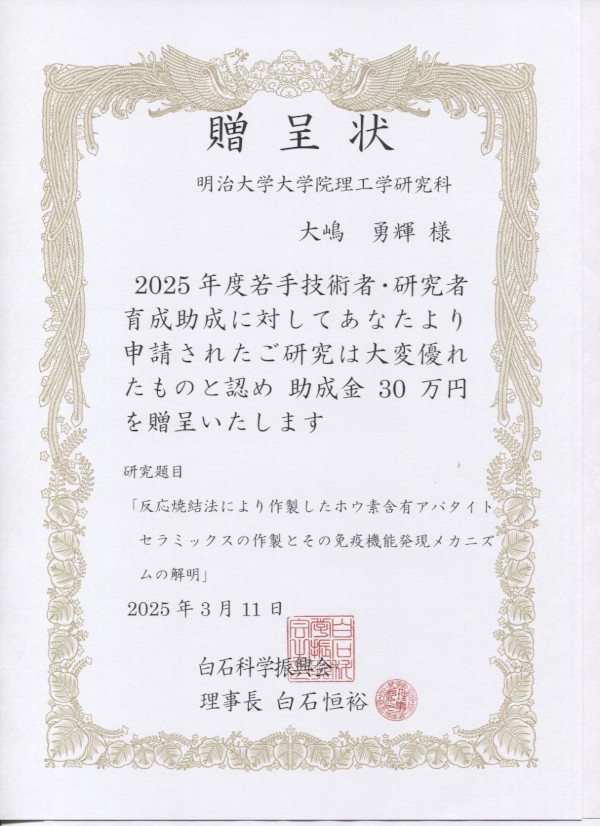 贈呈状
明治大学大学院理工学研究科
大嶋 勇輝 様
2025年度若手技術者・研究者
育成助成に対してあなたより
申請されたご研究は大変優れ
たものと認め 助成金 30 万円
を贈呈いたします
研究題目
「反応焼結法により作製したホウ素含有アパタイト
セラミックスの作製とその免疫機能発現メカニズ
ムの解明」
2025年3月11日
白石科学振興会
理事長 白石恒裕